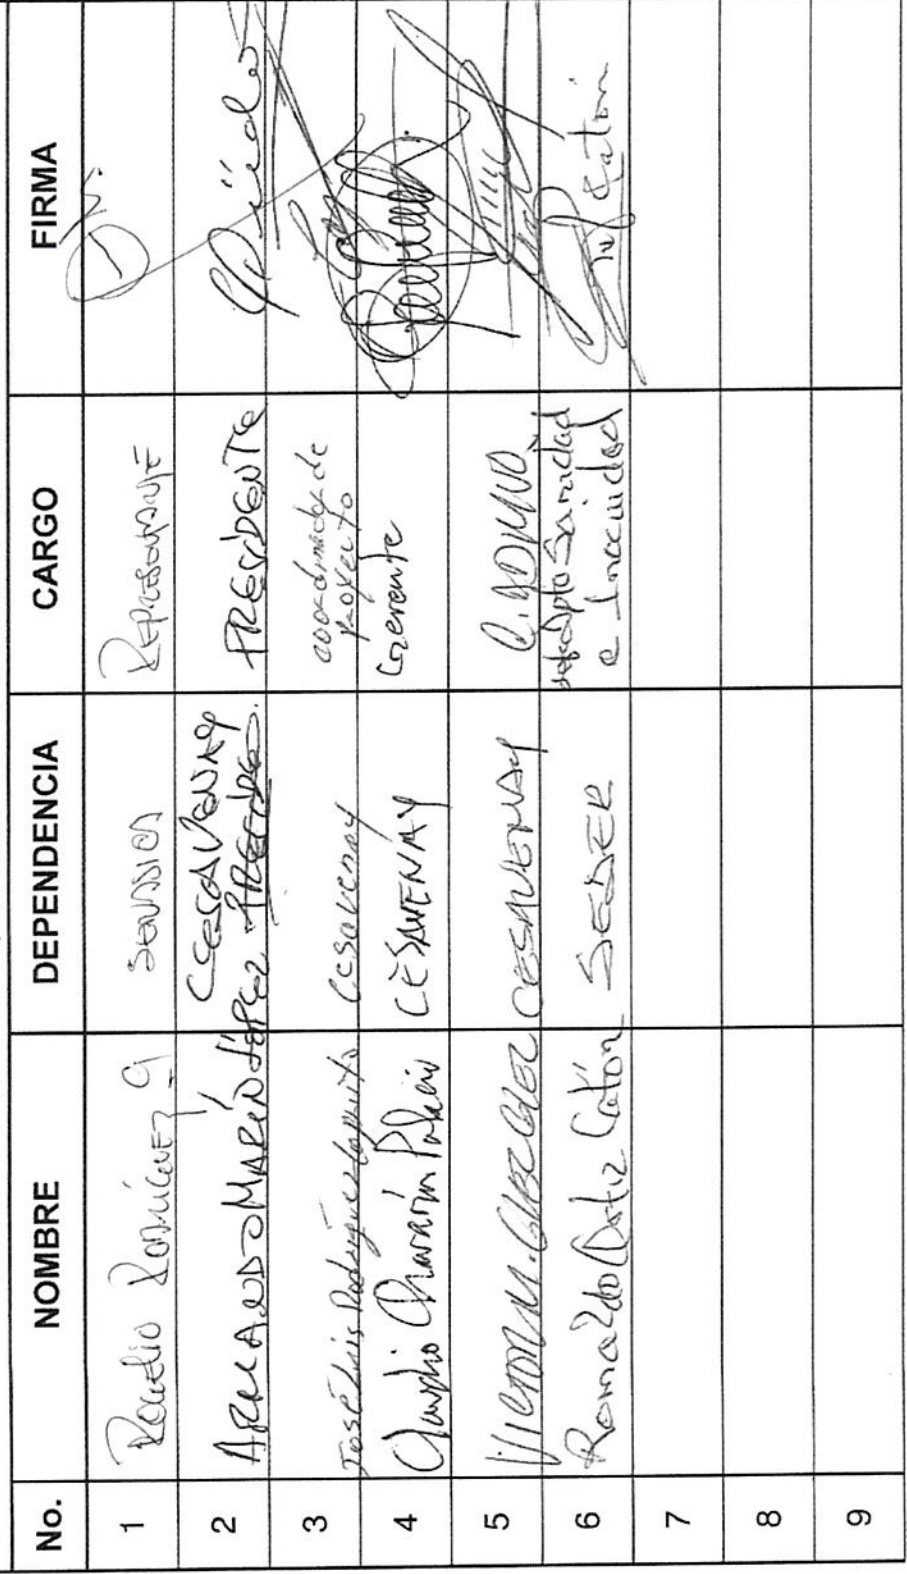 No. NOMBRE DEPENDENCIA CARGO FIRMA
1 Rogelio Rodríguez G SENASICA REPRESENTANTE
2 ARMANDO MARÍN LÓPEZ CESAVENAY PRESIDENTE
3 José Luis Rodríguez Cesavenay coordinador de
proyecto
4 Claudio Chavarín Palacio CESAVENAY Gerente
5 VICTOR M. CESAVENAY
6 Romualdo Ortiz Catón SEDER Jefe Dpto Sanidad
e Inocuidad
Catón
7
8
9